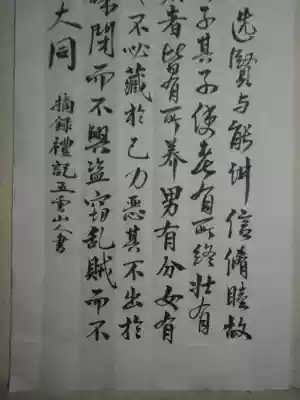 选賢与能讲信脩睦故
子其子使老有所終壮有
者皆有所养男有分女有
不必藏於己力恶其不出於
閉而不興盗窃乱賊而不
大同
摘錄禮記五雲山人書